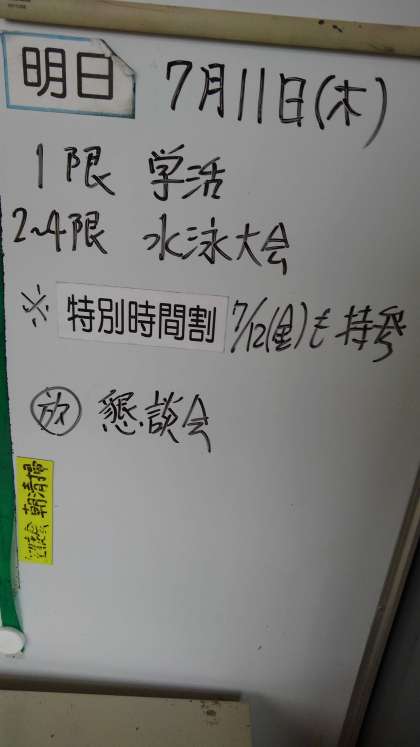 明日 7月11日(木)
1限 学活
2~4限 水泳大会
※ 特別時間割 7/12(金)も
放 懇談会
朝清掃